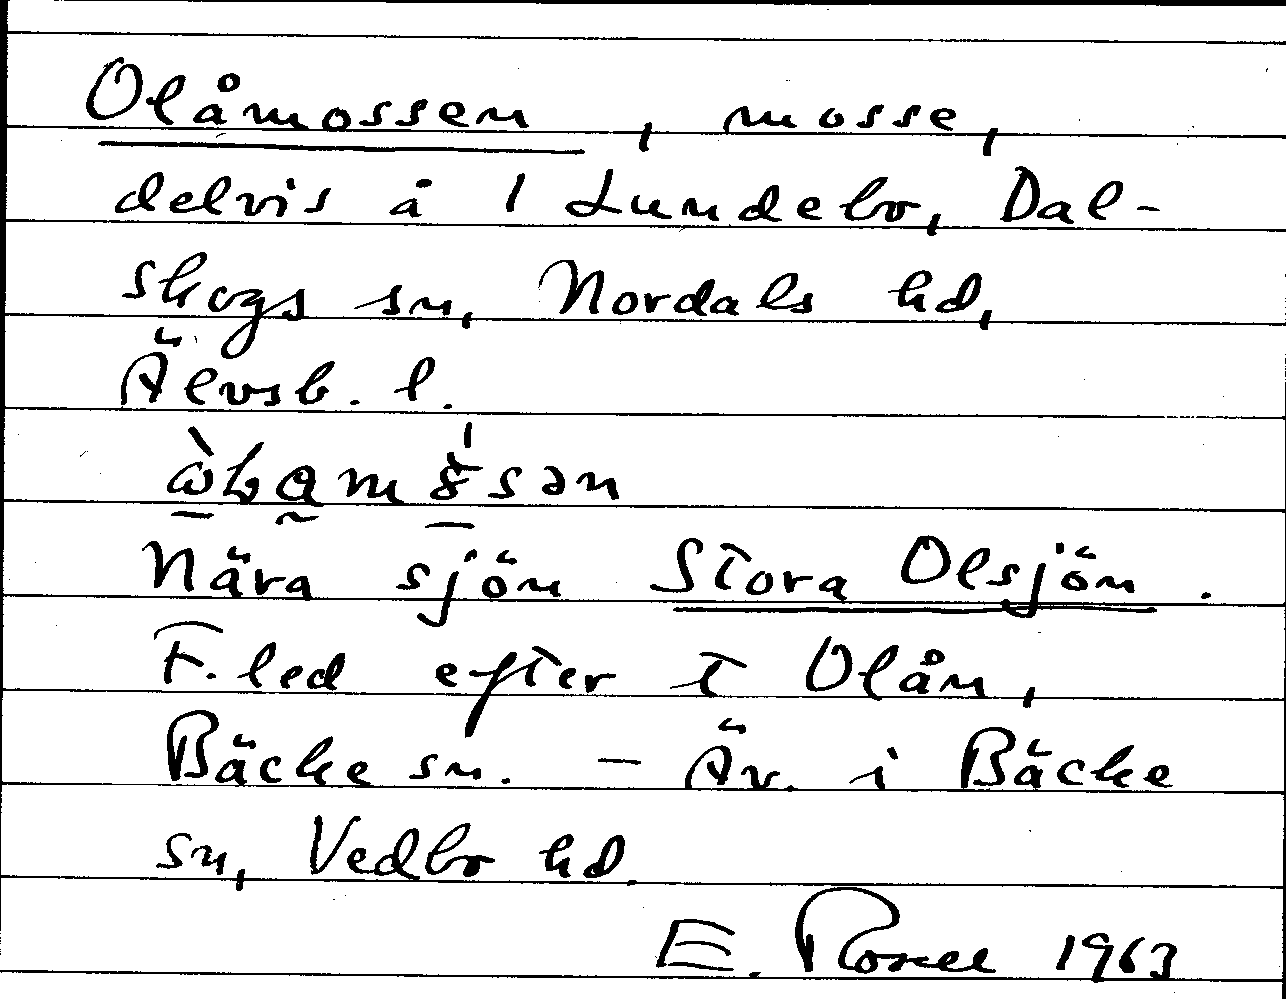 Olåmossen, mosse,
delvis å 1 Lundebo, Dal-
skogs sn, Nordals hd,
Älvsb. l.
Nära sjön Stora Olsjön.
F. led efter t Olån,
Bäcke sn. – Äv. i Bäcke
sn, Vedbo hd.
E. Rosell 1963